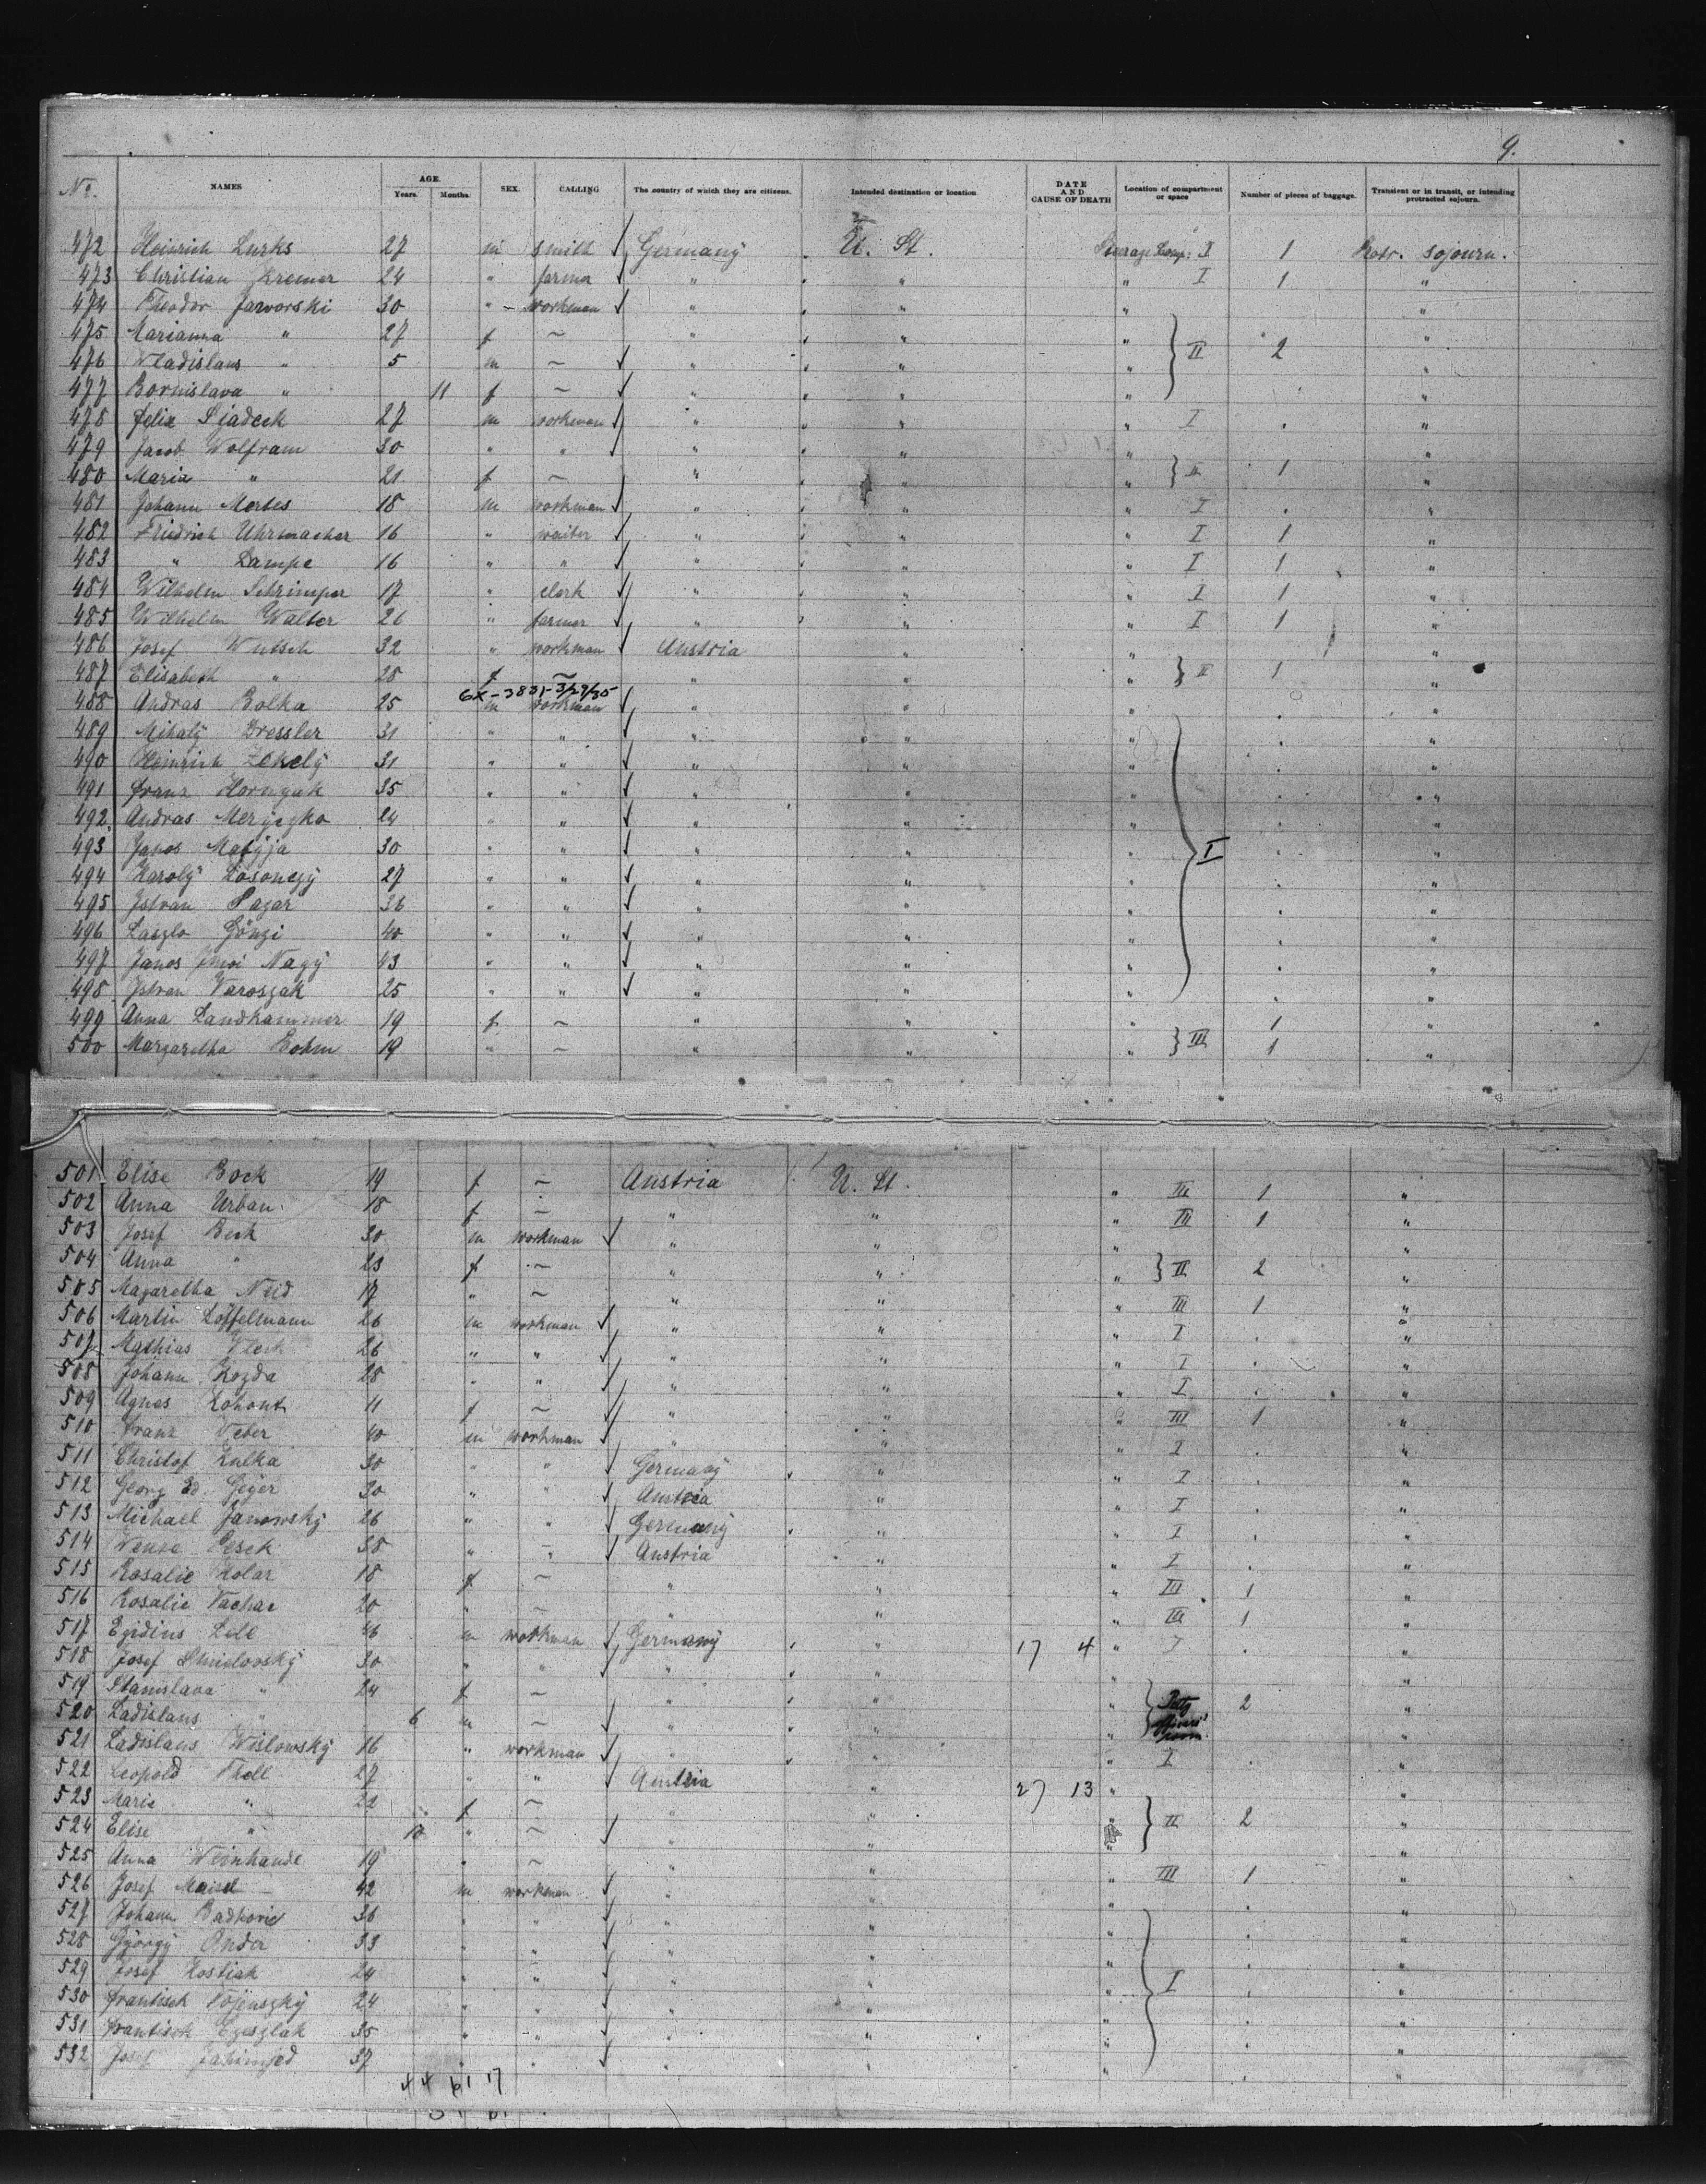 9.
No. NAMES AGE. Years. Months. SEX. CALLING The country of which they are citizens. Intended destination or location. DATE AND CAUSE OF DEATH Location of compartment or space Number of pieces of baggage. Transient or in transit, or intending protracted sojourn.
472 Heinrich Lurks 27 m smith Germany U. St. Steerage Comp: I 1 Protr. sojourn.
473 Christian Kremer 24 " farmer " " " I 1 "
474 Theodor Jarvorski 30 " workman " " " "
475 Marianna " 27 f ~ " " " II 2 "
476 Wladislaus " 5 m ~ " " " "
477 Bornislava " 11 f ~ " " " "
478 Felix Sjadeck 27 m workman " " " I . "
479 Jacob Wolfram 30 " " " " " "
480 Maria " 21 f ~ " " " II 1 "
481 Johann Mortes 18 m workman " " " I . "
482 Friedrich Uhrmacher 16 " waiter " " " I 1 "
483 " Lampe 16 " " " " " I 1 "
484 Wilhelm Schrimper 17 " clerk " " " I 1 "
485 Wilhelm Walter 26 " farmer " " " I 1 "
486 Josef Wutsch 32 " workman Austria " " "
487 Elisabeth " 28 f ~ " " " II 1 "
6X-3831-3/29/35
488 Andras Bolka 25 m workman " " " . "
489 Mihalÿ Dressler 31 " " " " " . "
490 Heinrich Zekelÿ 31 " " " " " . "
491 Franz Hornyak 35 " " " " " . "
492 Andras 24 " " " " " . "
493 Janos Matyja 30 " " " " " I . "
494 Karolÿ Losonczÿ 27 " " " " " . "
495 Istvan Pazar 36 " " " " " . "
496 Laszlo Gönzi 40 " " " " " . "
497 Janos Nagÿ 43 " " " " " . "
498 Istvan Varoszak 25 " " " " " . "
499 Anna Landkammer 19 f ~ " " " 1 "
500 Margaretha Bohm 19 " ~ " " " III 1 "
501 Elise Bock 19 f ~ Austria U. St. " III 1 "
502 Anna Urban 18 f ~ " " " III 1 "
503 Josef Beck 30 m workman " " " "
504 Anna " 23 f ~ " " " II 2 "
505 Magaretha Neid 17 " ~ " " " III 1 "
506 Martin Löffelmann 26 m workman " " " I . "
507 Mathias 26 " " " " " I . "
508 Johann Kozda 28 " " " " " I . "
509 Agnes Kohout 11 f ~ " " " III 1 "
510 Franz Weber 40 m workman " " " I . "
511 Christof Kulka 30 " " Germanÿ " " I . "
512 Georg Ed. Geÿer 30 " " Austria " " I . "
513 Michael Janowskÿ 26 " " Germanÿ " " I . "
514 Pesek 38 " " Austria " " I . "
515 Rosalie Kolar 18 f ~ " " " III 1 "
516 Rosalie Vachar 20 " ~ " " " III 1 "
517 Egidius 46 m workman Germanÿ " 17 4 " I . "
518 Josef Smielovskÿ 30 " " " " " "
519 Stanislava " 24 f ~ " " " Petty officers' room. 2 "
520 Ladislaus " 6 m ~ " " " "
521 Ladislaus Wislowskÿ 16 " workman " " " I . "
522 Leopold Thell 27 " " Austria " 27 13 " "
523 Marie " 22 f ~ " " " II 2 "
524 Elise " 10 " ~ " " " "
525 Anna Weinhandl 19 " ~ " " " III 1 "
526 Josef Maisel 42 m workman " " " . "
527 Johann Badkovic 36 " " " " " . "
528 Györgÿ Onder 33 " " " " " . "
529 Josef Kostiak 24 " " " " " I . "
530 Frantisek 24 " " " " " . "
531 Frantisek 35 " " " " " . "
532 Josef 37 " " " " " . "
44 61 17